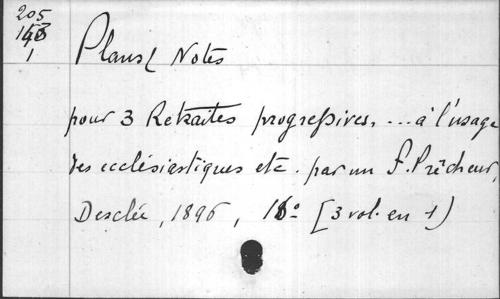 205
1
Plans & Notes
pour 3 Retraites progressives, ... à l'usage
des ecclésiastiques etc. par un F. Prêcheur,
Desclée, 1896, 18º [3 vol. en 1)